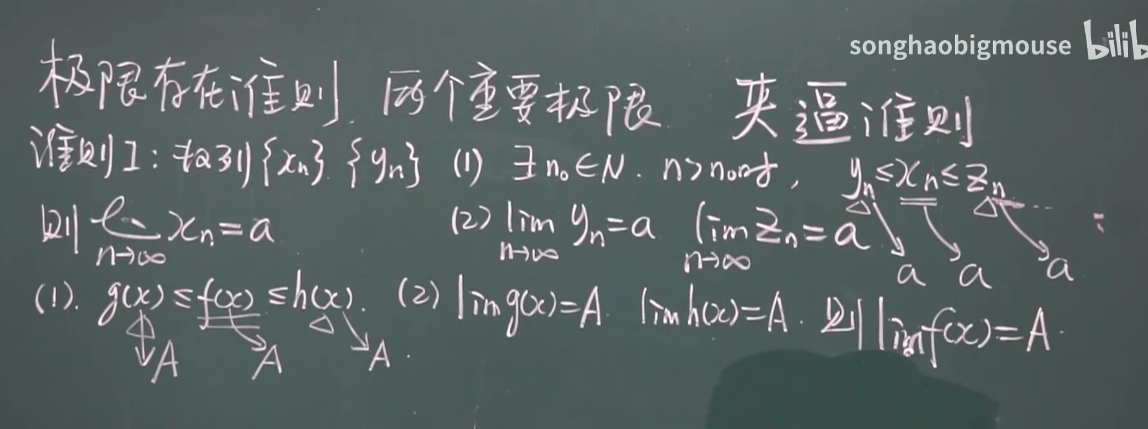 songhaobigmouse bilib
极限存在准则. 两个重要极限 夹逼准则
准则I:数列{xₙ} {yₙ} (1) ∃n₀∈N. n>n₀时, yₙ≤xₙ≤zₙ
则 lim xₙ=a (2) lim yₙ=a lim zₙ=a
n→∞ n→∞ n→∞ a a a
(1). g(x)≤f(x)≤h(x). (2) lim g(x)=A. lim h(x)=A. 则 lim f(x)=A.
A A A.